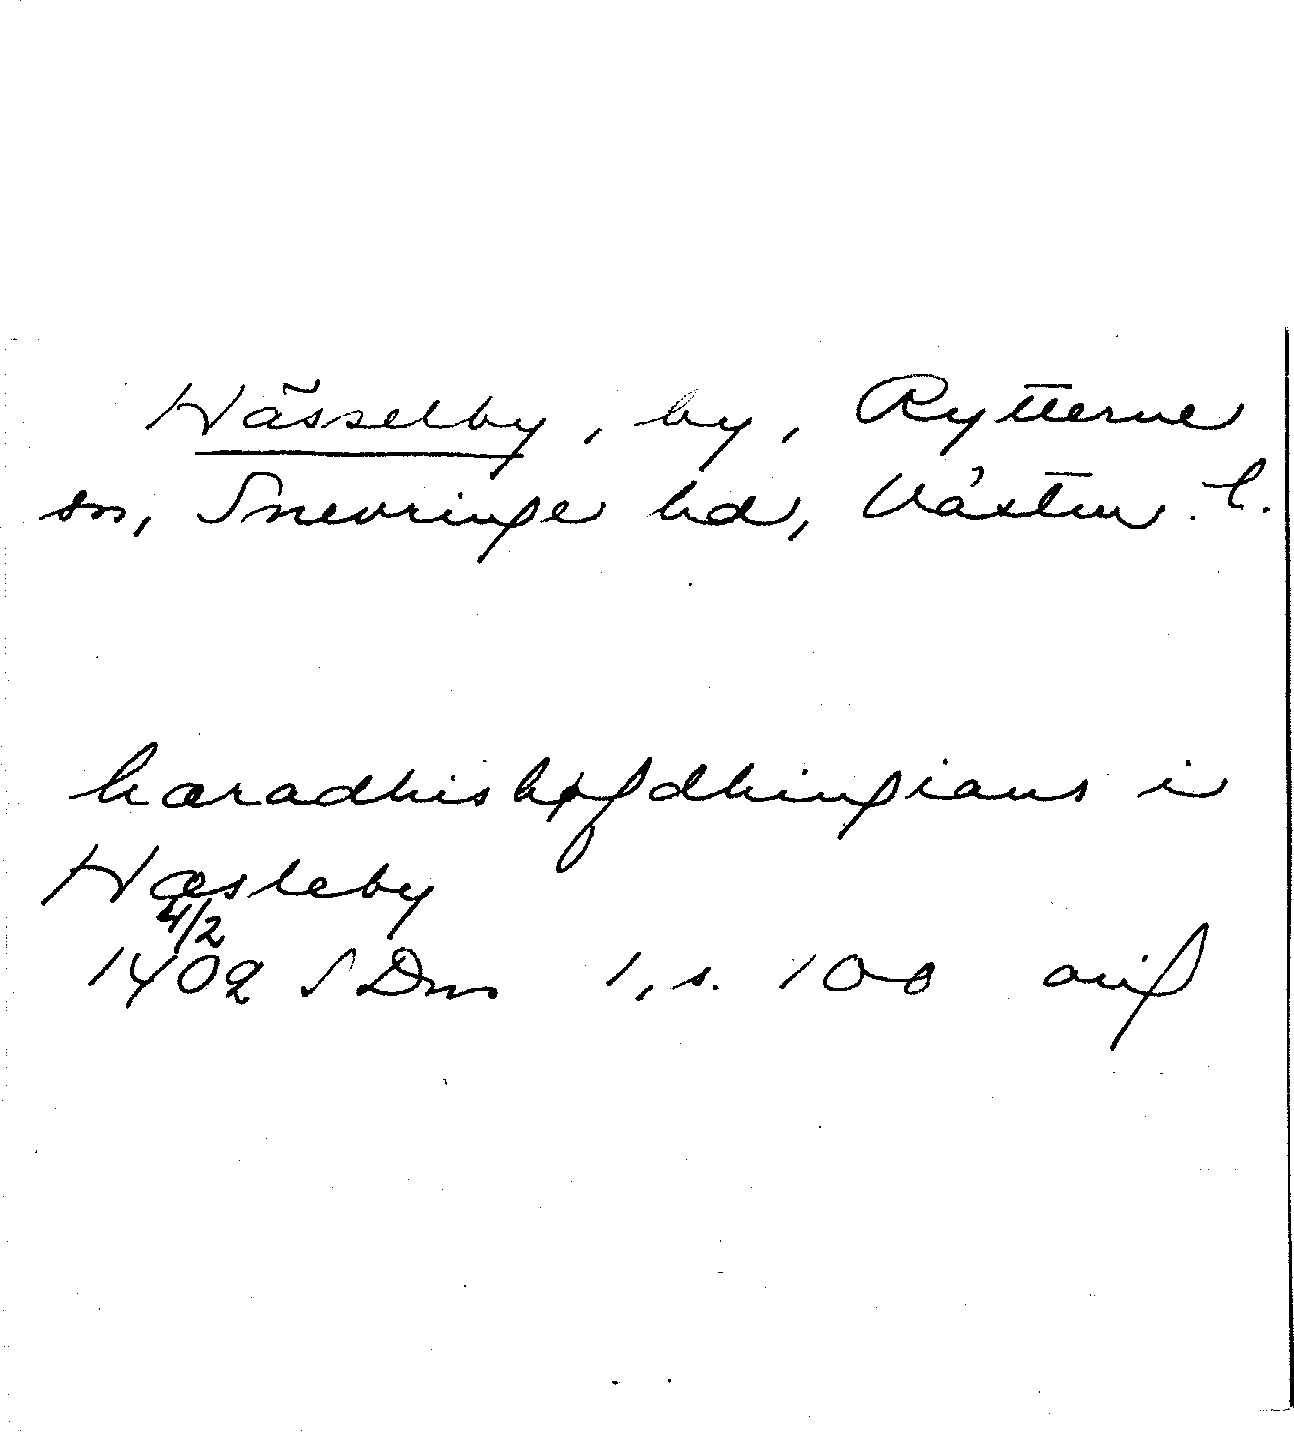 Hässelby, by, Rytterne
sn, Snevringe hd, Västm. l.
hæradhishøfdhingians i
Hæsleby
4/2
1402 SDns 1, s. 100 orig